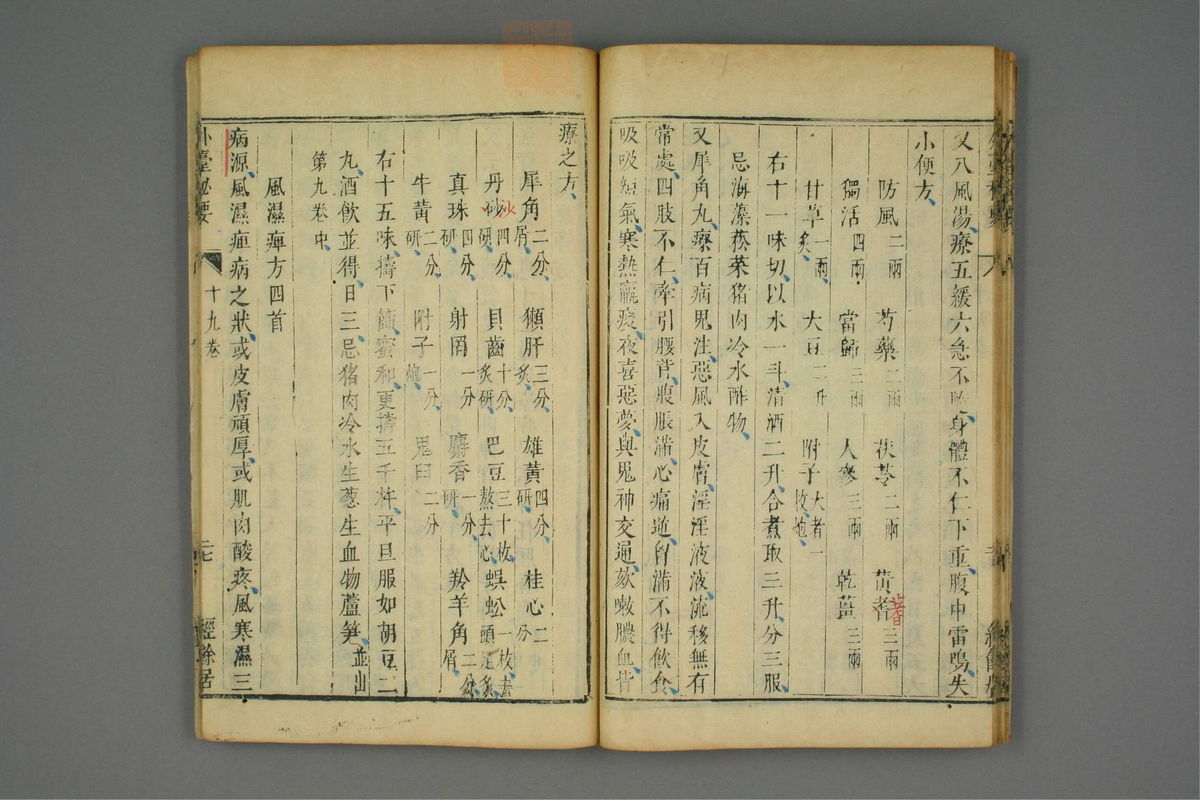 又八風湯療五緩六急不隨身體不仁下重腹中雷鳴失
小便方
防風二兩 芍藥二兩 茯苓二兩 黃耆三兩
蓍
獨活四兩 當歸三兩 人參三兩 乾薑三兩
甘草一兩炙 大豆二升 附子大者一枚炮
右十一味切以水一斗清酒二升合煮取三升分三服
忌海藻菘菜猪肉冷水酢物
又犀角丸療百病鬼注惡風入皮膚淫淫液液流移無有
常處四肢不仁牽引腰背腹脹滿心痛逆胷滿不得飲食
吸吸短氣寒熱羸瘦夜喜惡夢與鬼神交通欬嗽膿血皆
療之方
犀角二分屑 獺肝三分炙 雄黃四分研 桂心二分
丹砂四分研 貝齒十分炙研 巴豆三十枚熬去心 蜈蚣一枚去頭足炙
真珠四分研 射罔一分 麝香一分研 羚羊角二分屑
牛黃二分研 附子一分炮 鬼臼二分
右十五味擣下篩蜜和更擣五千杵平旦服如胡豆二
丸酒飲並得日三忌猪肉冷水生葱生血物蘆笋並出
第九卷中
風濕痺方四首
病源風濕痺病之狀或皮膚頑厚或肌肉酸疼風寒濕三
外臺秘要 十九卷 二七 經餘居